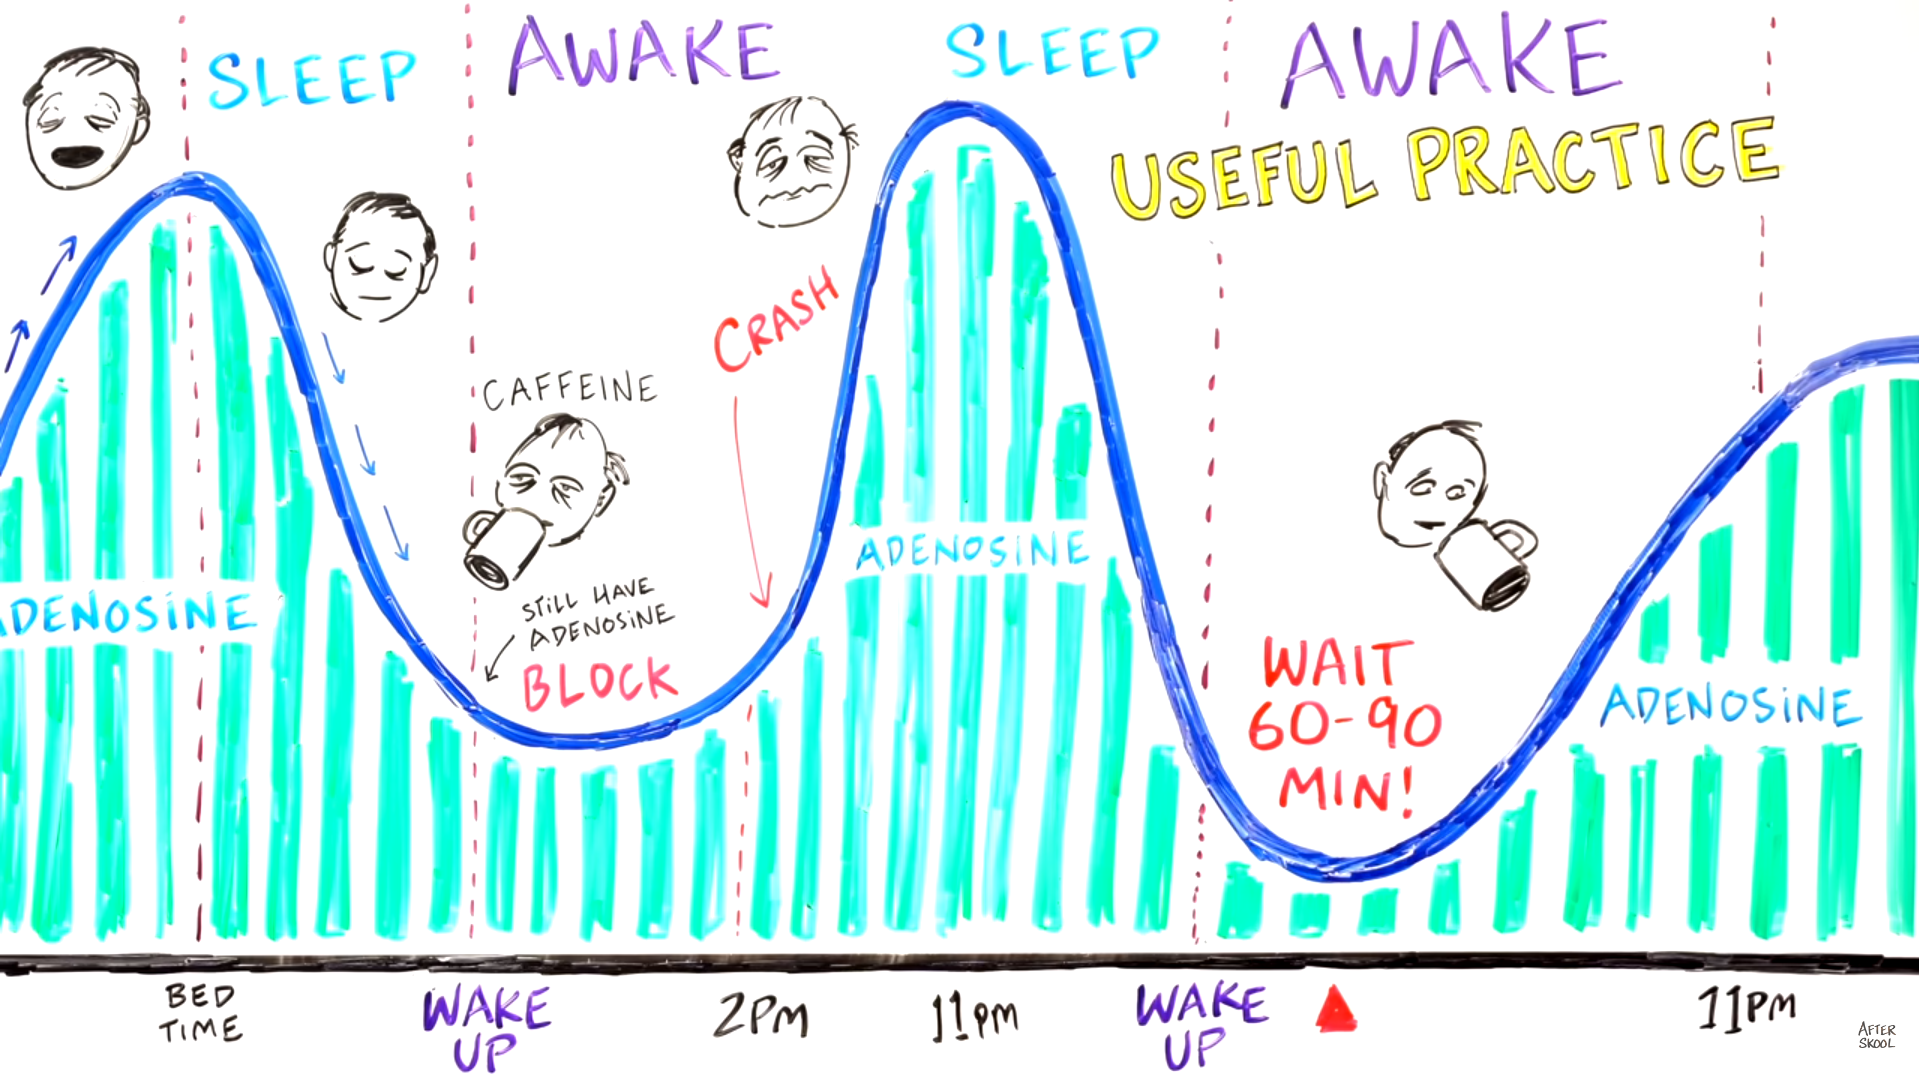 SLEEP
AWAKE
SLEEP
AWAKE
USEFUL PRACTICE
CRASH
CAFFEINE
STILL HAVE
ADENOSINE
BLOCK
ADENOSINE
ADENOSINE
WAIT
60-90
MIN!
ADENOSINE
BED
TIME
WAKE
UP
2PM
11PM
WAKE
UP
11PM
AFTER
SKOOL